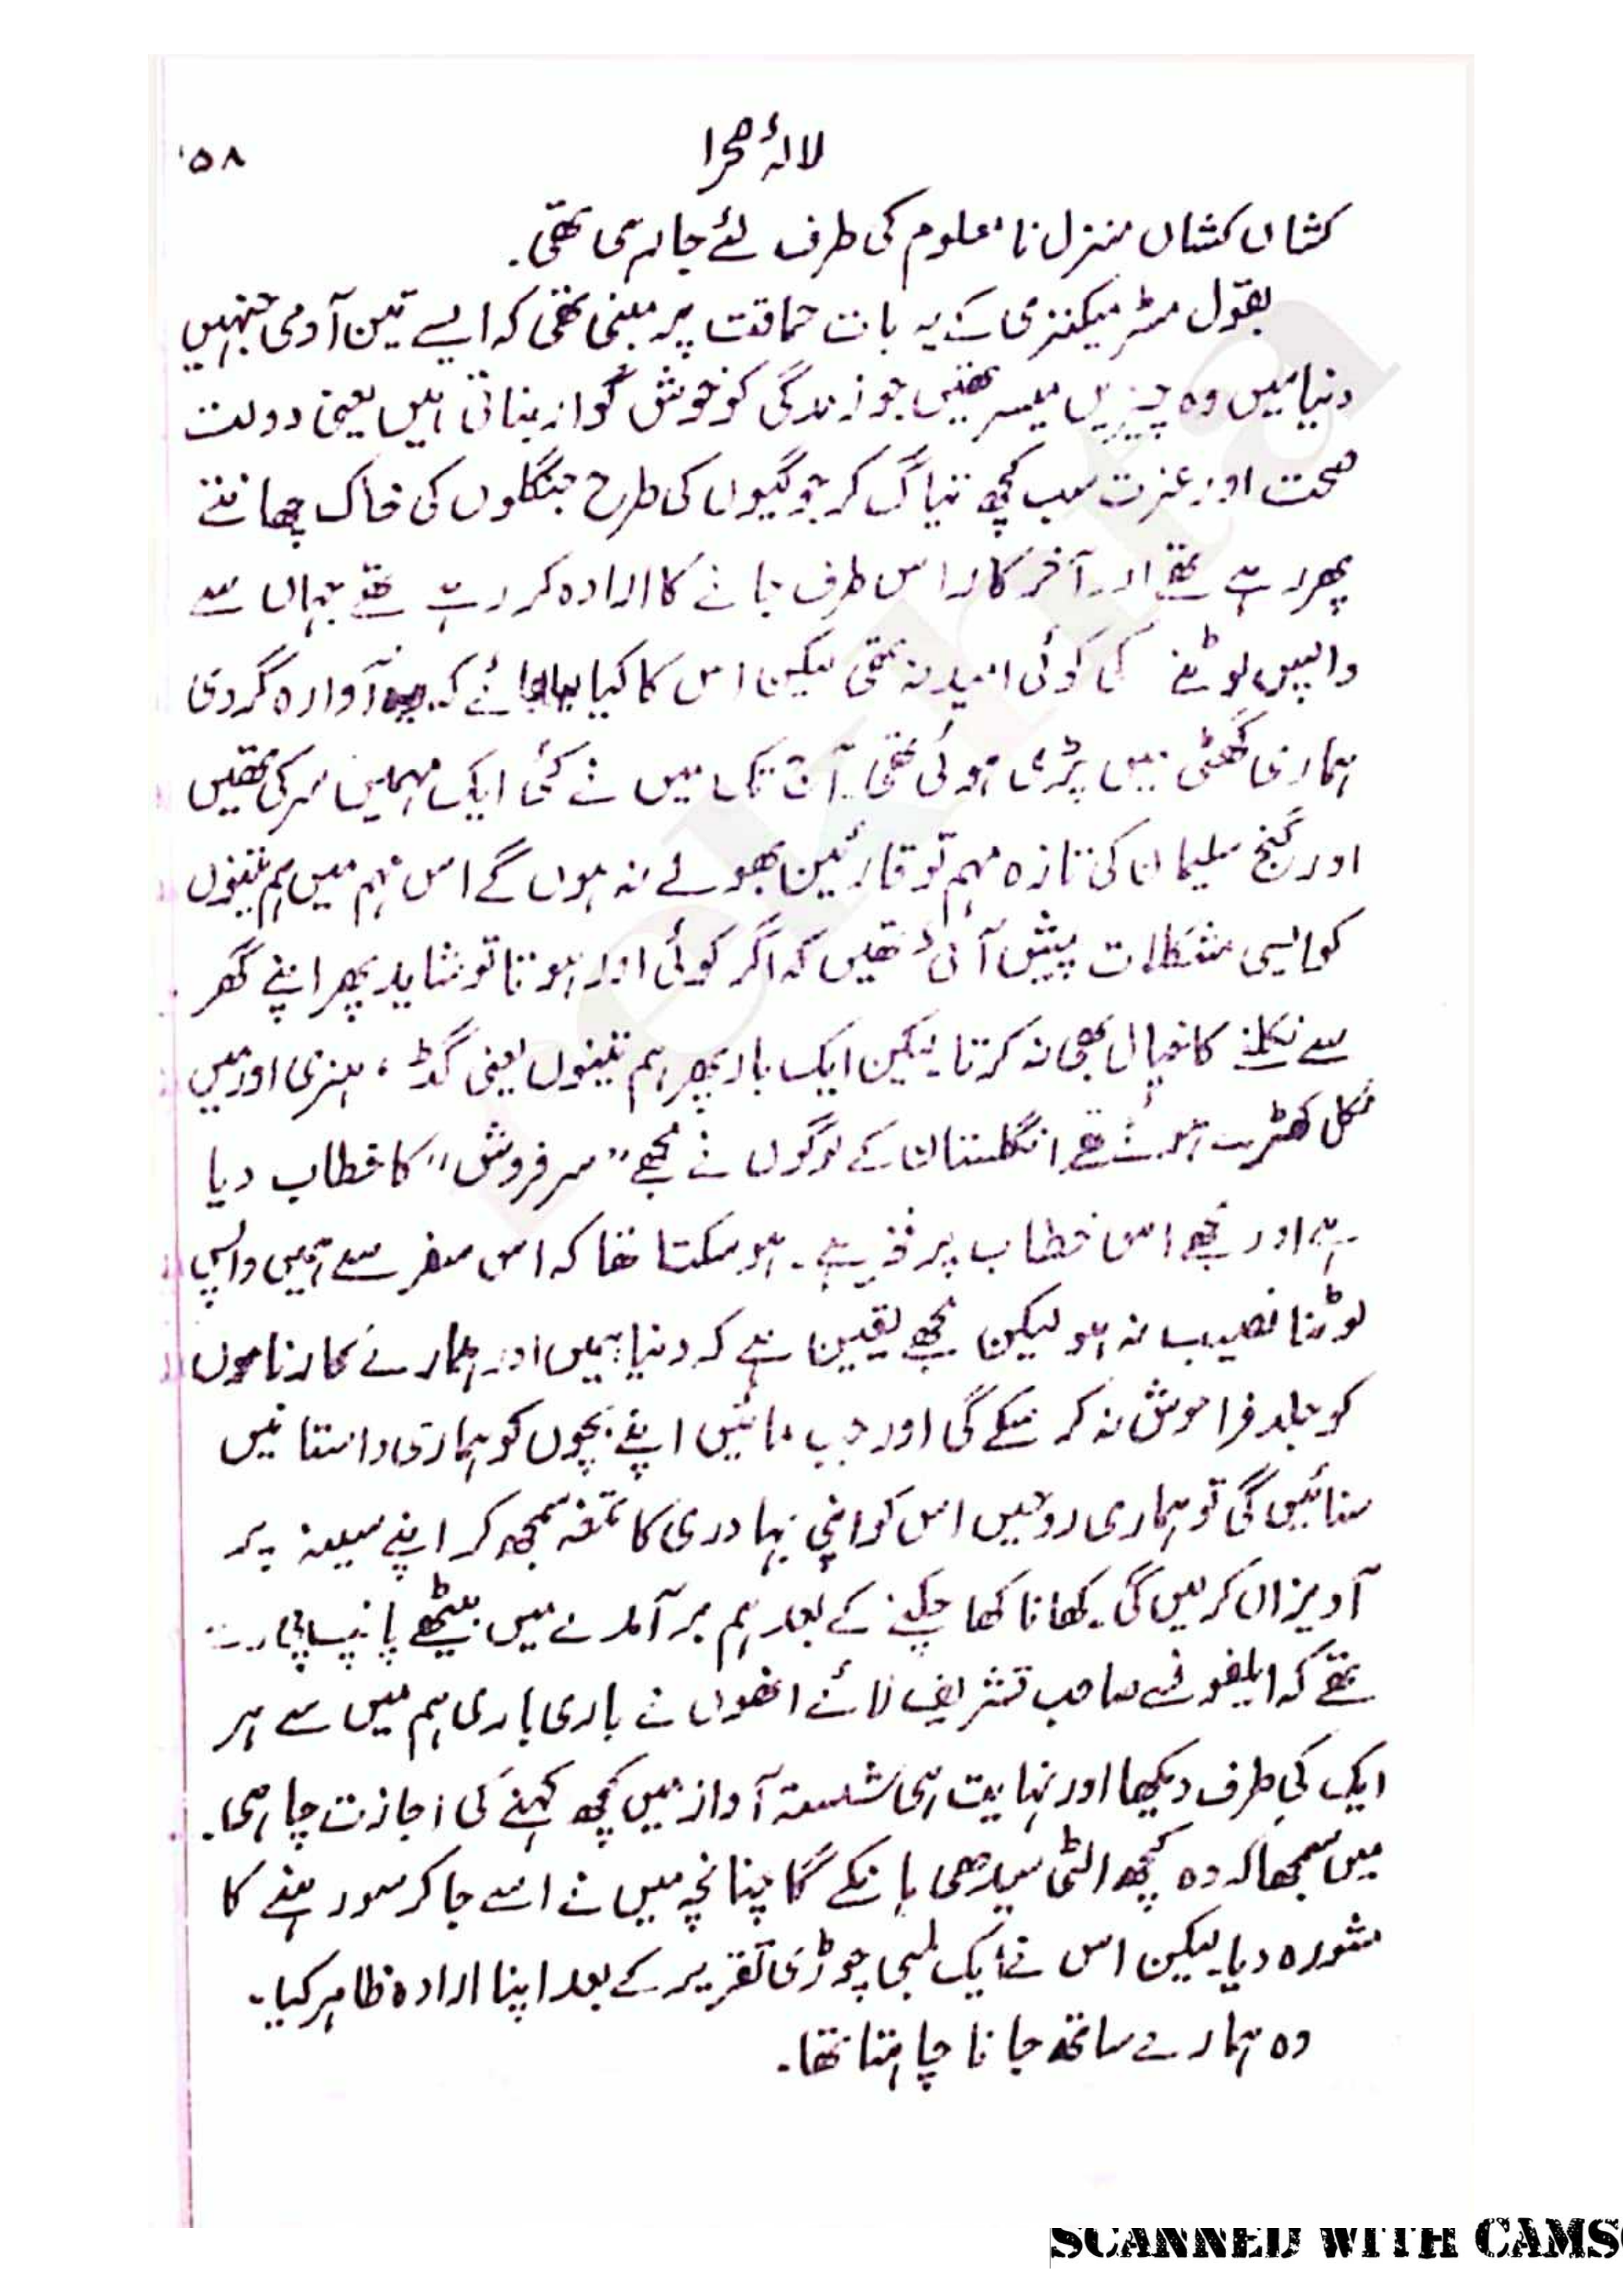 ۵۸
لالۂ صحرا
کشاں کشاں منزل نامعلوم کی طرف لئے جا رہی تھی۔
بقول مسٹر میکنزی کے یہ بات حماقت پر مبنی تھی کہ ایسے تین آدمی جنہیں
دنیا میں وہ چیزیں میسر تھیں جو زندگی کو خوش گوار بناتی ہیں یعنی دولت
صحت اور عزت سب کچھ تیاگ کر جوگیوں کی طرح جنگلوں کی خاک چھانتے
پھر رہے تھے اور آخر کار اس طرف جانے کا ارادہ کر رہے تھے جہاں سے
واپس لوٹنے کی کوئی امید نہ تھی لیکن اس کا کیا جائے کہ آوارہ گردی
ہماری گھٹی میں پڑی ہوئی تھی۔ آج تک میں نے کئی ایک مہمیں سر کی تھیں
اور گنج سلیمان کی تازہ مہم تو قارئین بھولے نہ ہوں گے اس مہم میں ہم تینوں
کو ایسی مشکلات پیش آئی تھیں کہ اگر کوئی اور ہوتا تو شاید پھر اپنے گھر
سے نکلنے کا خیال بھی نہ کرتا لیکن ایک بار پھر ہم تینوں یعنی گڈ، ہنری اور میں
نکل کھڑے ہوئے تھے انگلستان کے لوگوں نے مجھے "سرفروش" کا خطاب دیا
ہے اور مجھے اس خطاب پر فخر ہے۔ ہو سکتا تھا کہ اس سفر سے ہمیں واپس
لوٹنا نصیب نہ ہو لیکن مجھے یقین ہے کہ دنیا ہمیں اور ہمارے کارناموں
کو جلد فراموش نہ کر سکے گی اور جب مائیں اپنے بچوں کو ہماری داستانیں
سنائیں گی تو ہماری روحیں اس کو اپنی بہادری کا تمغہ سمجھ کر اپنے سینہ پر
آویزاں کریں گی۔ کھانا کھا چکنے کے بعد ہم برآمدے میں بیٹھے پائپ پی رہے
تھے کہ ایلفونسے صاحب تشریف لائے انھوں نے باری باری ہم میں سے ہر
ایک کی طرف دیکھا اور نہایت ہی شستہ آواز میں کچھ کہنے کی اجازت چاہی۔
میں سمجھا کہ وہ کچھ الٹی سیدھی ہانکے گا چنانچہ میں نے اسے جا کر سو رہنے کا
مشورہ دیا لیکن اس نے ایک لمبی چوڑی تقریر کے بعد اپنا ارادہ ظاہر کیا۔
وہ ہمارے ساتھ جانا چاہتا تھا۔
SCANNED WITH CAMS